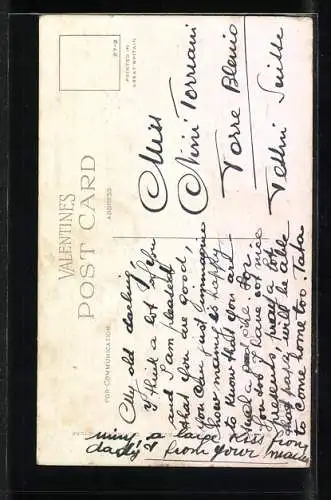 VALENTINES
POST CARD
FOR COMMUNICATION
ADDRESS
PRINTED IN
GREAT BRITAIN
Miss
Nini Torriani
Torre Blenio
Tessin Suisse
My old darling
I think a lot of you
and I am pleased
that you are good,
you can just immagine
how mamy is happy
to know that you are
such a
you too I have got nice
presents, pray a lot
that papa will be able
to come home too. Tata
mimy, a large kiss from
dady & from your mamy